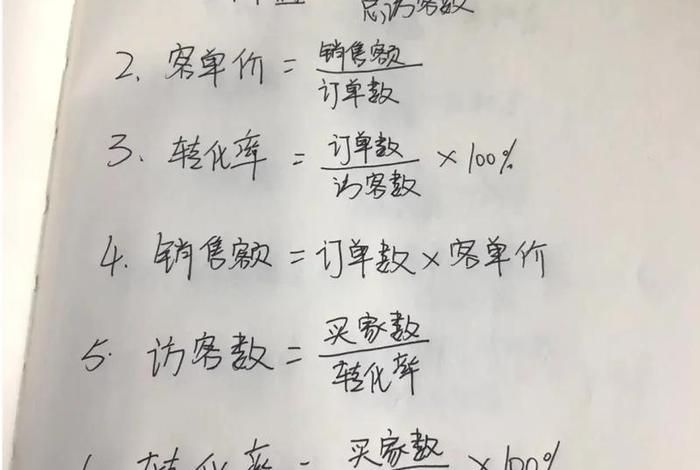 总访客数
2、客单价 = 销售额 / 订单数
3、转化率 = 订单数 / 访客数 × 100%
4. 销售额 = 订单数 × 客单价
5. 访客数 = 买家数 / 转化率
转化率 = 买家数 × 100%